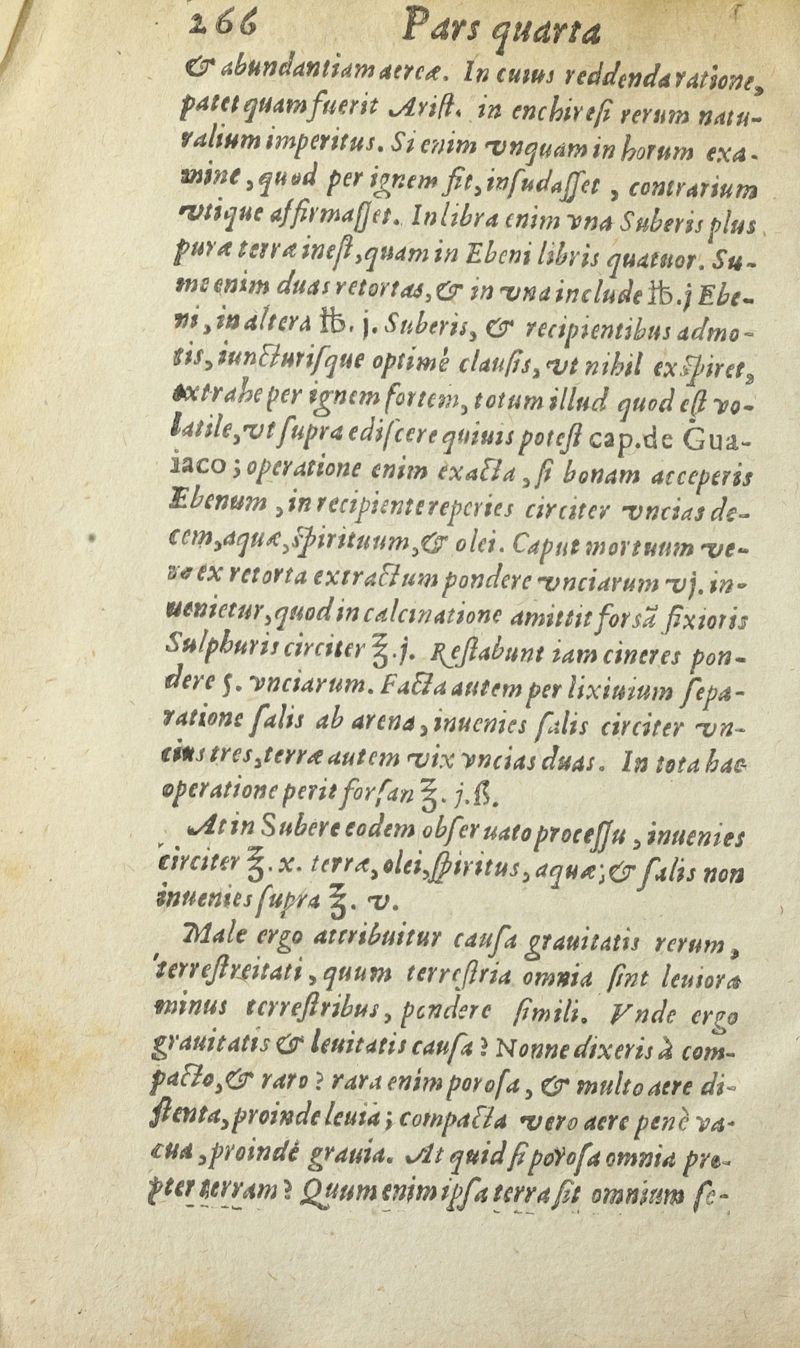 266 Pars quarta
& abundantiam aereæ. In cuius reddenda ratione,
patet quam fuerit Arist. in enchiresi rerum natu-
ralium imperitus. Si enim vnquam in horum exa-
mine, quod per ignem fit, insudasset, contrarium
vtique affirmasset. In libra enim vna Suberis plus
puræ terræ inest, quam in Ebeni libris quatuor. Su-
me enim duas retortas, & in vna include ℔.j Ebe-
ni, in altera ℔. j. Suberis, & recipientibus admo-
tis, iuncturisque optimè clausis, vt nihil exspiret,
extrahe per ignem fortem, totum illud quod est vo-
latile, vt supra ediscere quiuis potest cap.de Gua-
iaco; operatione enim exacta, si bonam acceperis
Ebenum, in recipiente reperies circiter vncias de-
cem, aquæ, spirituum, & olei. Caput mortuum ve-
rò ex retorta extractum pondere vnciarum vj. in-
uenietur, quod in calcinatione amittit forsã fixioris
Sulphuris circiter ℥.j. Restabunt iam cineres pon-
dere 5. vnciarum. Facta autem per lixiuium sepa-
ratione salis ab arena, inuenies salis circiter vn-
cias tres, terræ autem vix vncias duas. In tota hac
operatione perit forsan ℥. j.ß.
At in Subere eodem obseruato processu, inuenies
circiter ℥. x. terræ, olei, spiritus, aquæ; & salis non
inuenies supra ℥. v.
Male ergo attribuitur causa grauitatis rerum,
terrestreitati, quum terrestria omnia sint leuiora
minus terrestribus, pondere simili. Vnde ergo
grauitatis & leuitatis causa? Nonne dixeris à com-
pacto, & raro? rara enim porosa, & multo aere di-
stenta, proinde leuia; compacta vero aere penè va-
cua, proindè grauia. At quid si porosa omnia pro-
pter terram? Quum enim ipsa terra sit omnium se-